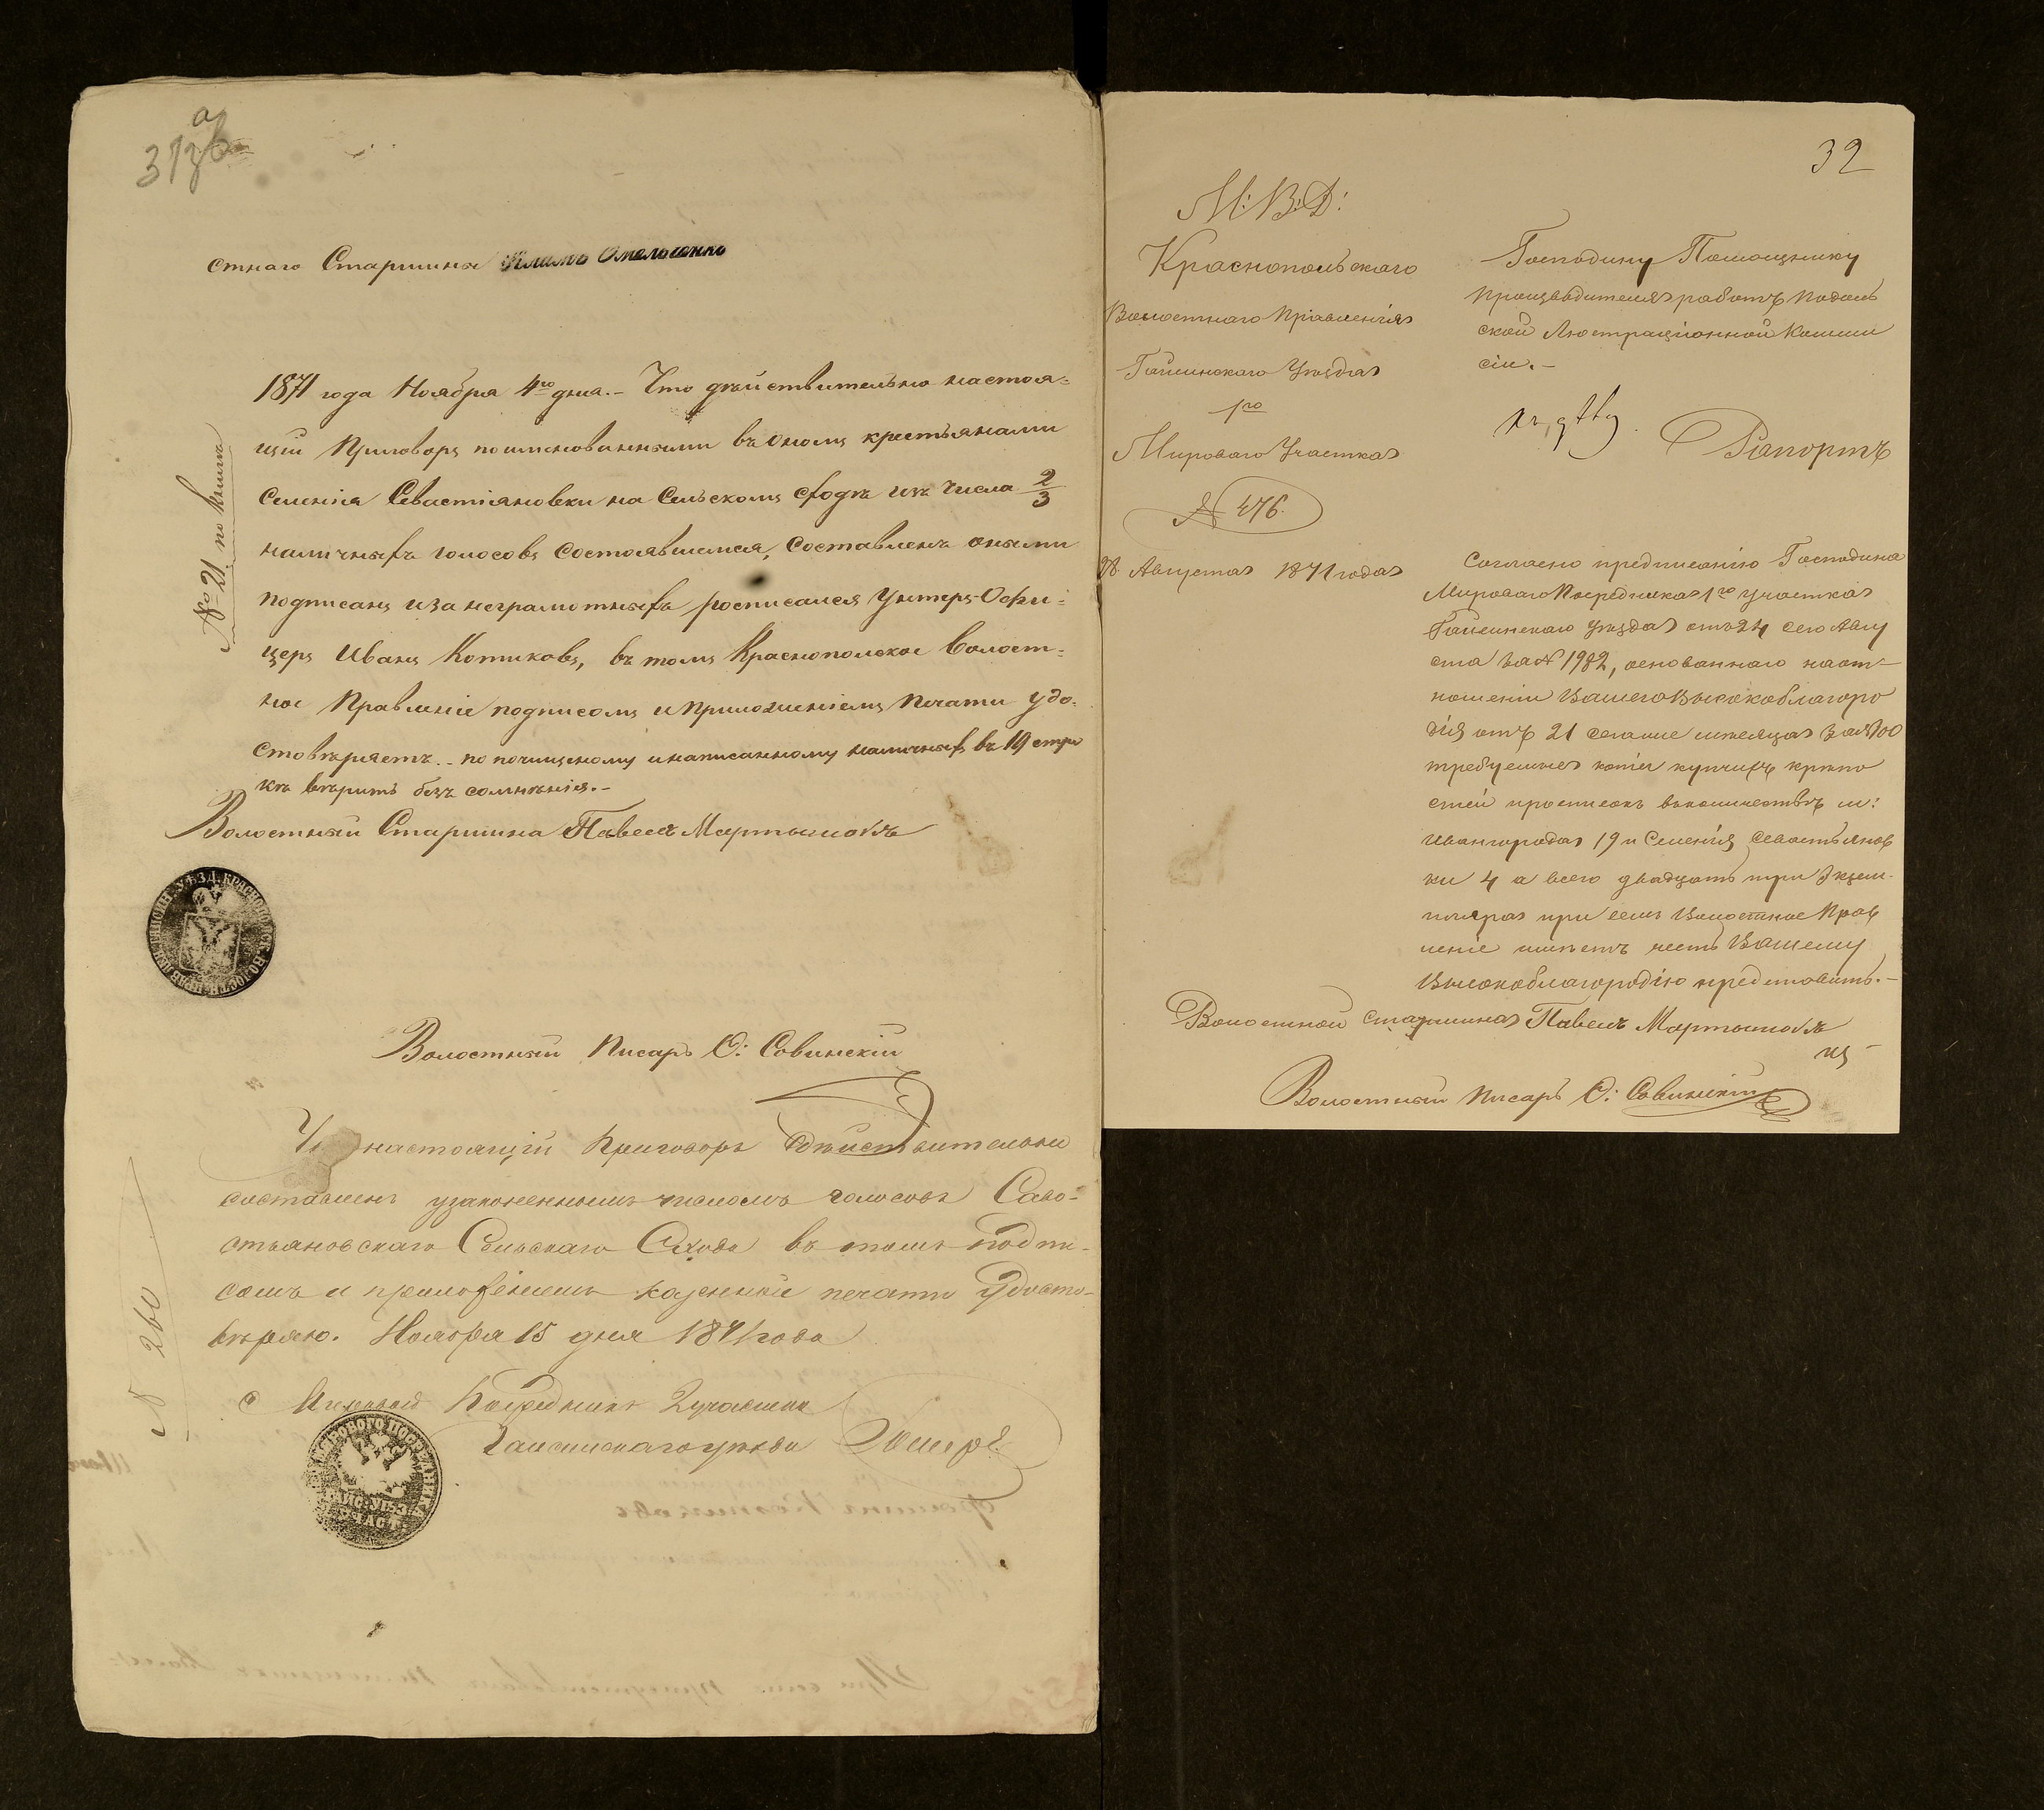 стнаго Старшины Климъ Омельченко
1871 года Ноября 4го дня.- Что дѣйствительно настоя=
щій Приговоръ поимянованными въ ономъ крестьянами
Селенія Севастіяновки на Сельскомъ сходѣ изъ числа 2/3
наличныхъ голосовъ состоявшимся, составленъ оными
подписанъ и за неграмотныхъ росписался Унтеръ-Офи=
церъ Иванъ Котиковъ, въ томъ Краснопольское Волост=
ное Правленіе подписомъ и приложеніемъ Печати удо=
стовѣряетъ.- по почищеному и написанному наличныхъ въ 19 стро
кѣ вѣрить безъ сомнѣнія.-
№ 21 по книгѣ
Волостный Старшина Павелъ Мартынюкъ
ГАЙСИН. УѢЗД. КРАСНОПОЛЬСК. ВОЛОСТН. ПРАВЛЕН.
Волостный Писарь О: Совинскій
настоящій Приговоръ дѣйствительно
составленъ узаконеннымъ числомъ голосовъ Саво-
стьяновскаго Сельскаго Схода въ томъ подпи-
сомъ и приложеніемъ казенной печати удосто-
вѣряю. Ноября 15 дня 1871 года
№ 260
Мировой Посредникъ 2 участка
Гайсинскаго уѣзда
МИРОВОГО ПОСРЕДНИКА
32
М: В: Д:
Краснопольскаго
Волостнаго Правленія
Гайсинскаго Уѣзда
1го
Мироваго Участка
№ 476.
28 Августа 1871 года
Господину Помощнику
Производителя работъ Подоль
ской Люстраціонной Комми
сіи.-
Рапортъ
Согласно предписанію Господина
Мироваго Посредника 1го участка
Гайсинскаго уѣзда отъ 24 сего Авгу
ста за № 1982, основаннаго на от-
ношеніи Вашего Высокоблагоро
дія отъ 21 сего же мѣсяца за №100
требуемыя копіи купчихъ крѣпо
стей прописокъ въ количествѣ м:
Ивангорода 19 и Селенія Севастьянов
ки 4 а всего двадцать три Экзем-
пляра при семъ Волостное Прав
леніе имѣетъ честь Вашему
Высокоблагородію представить.-
Волостной старшина Павелъ Мартынюкъ
Волостный Писарь О: Совинскій